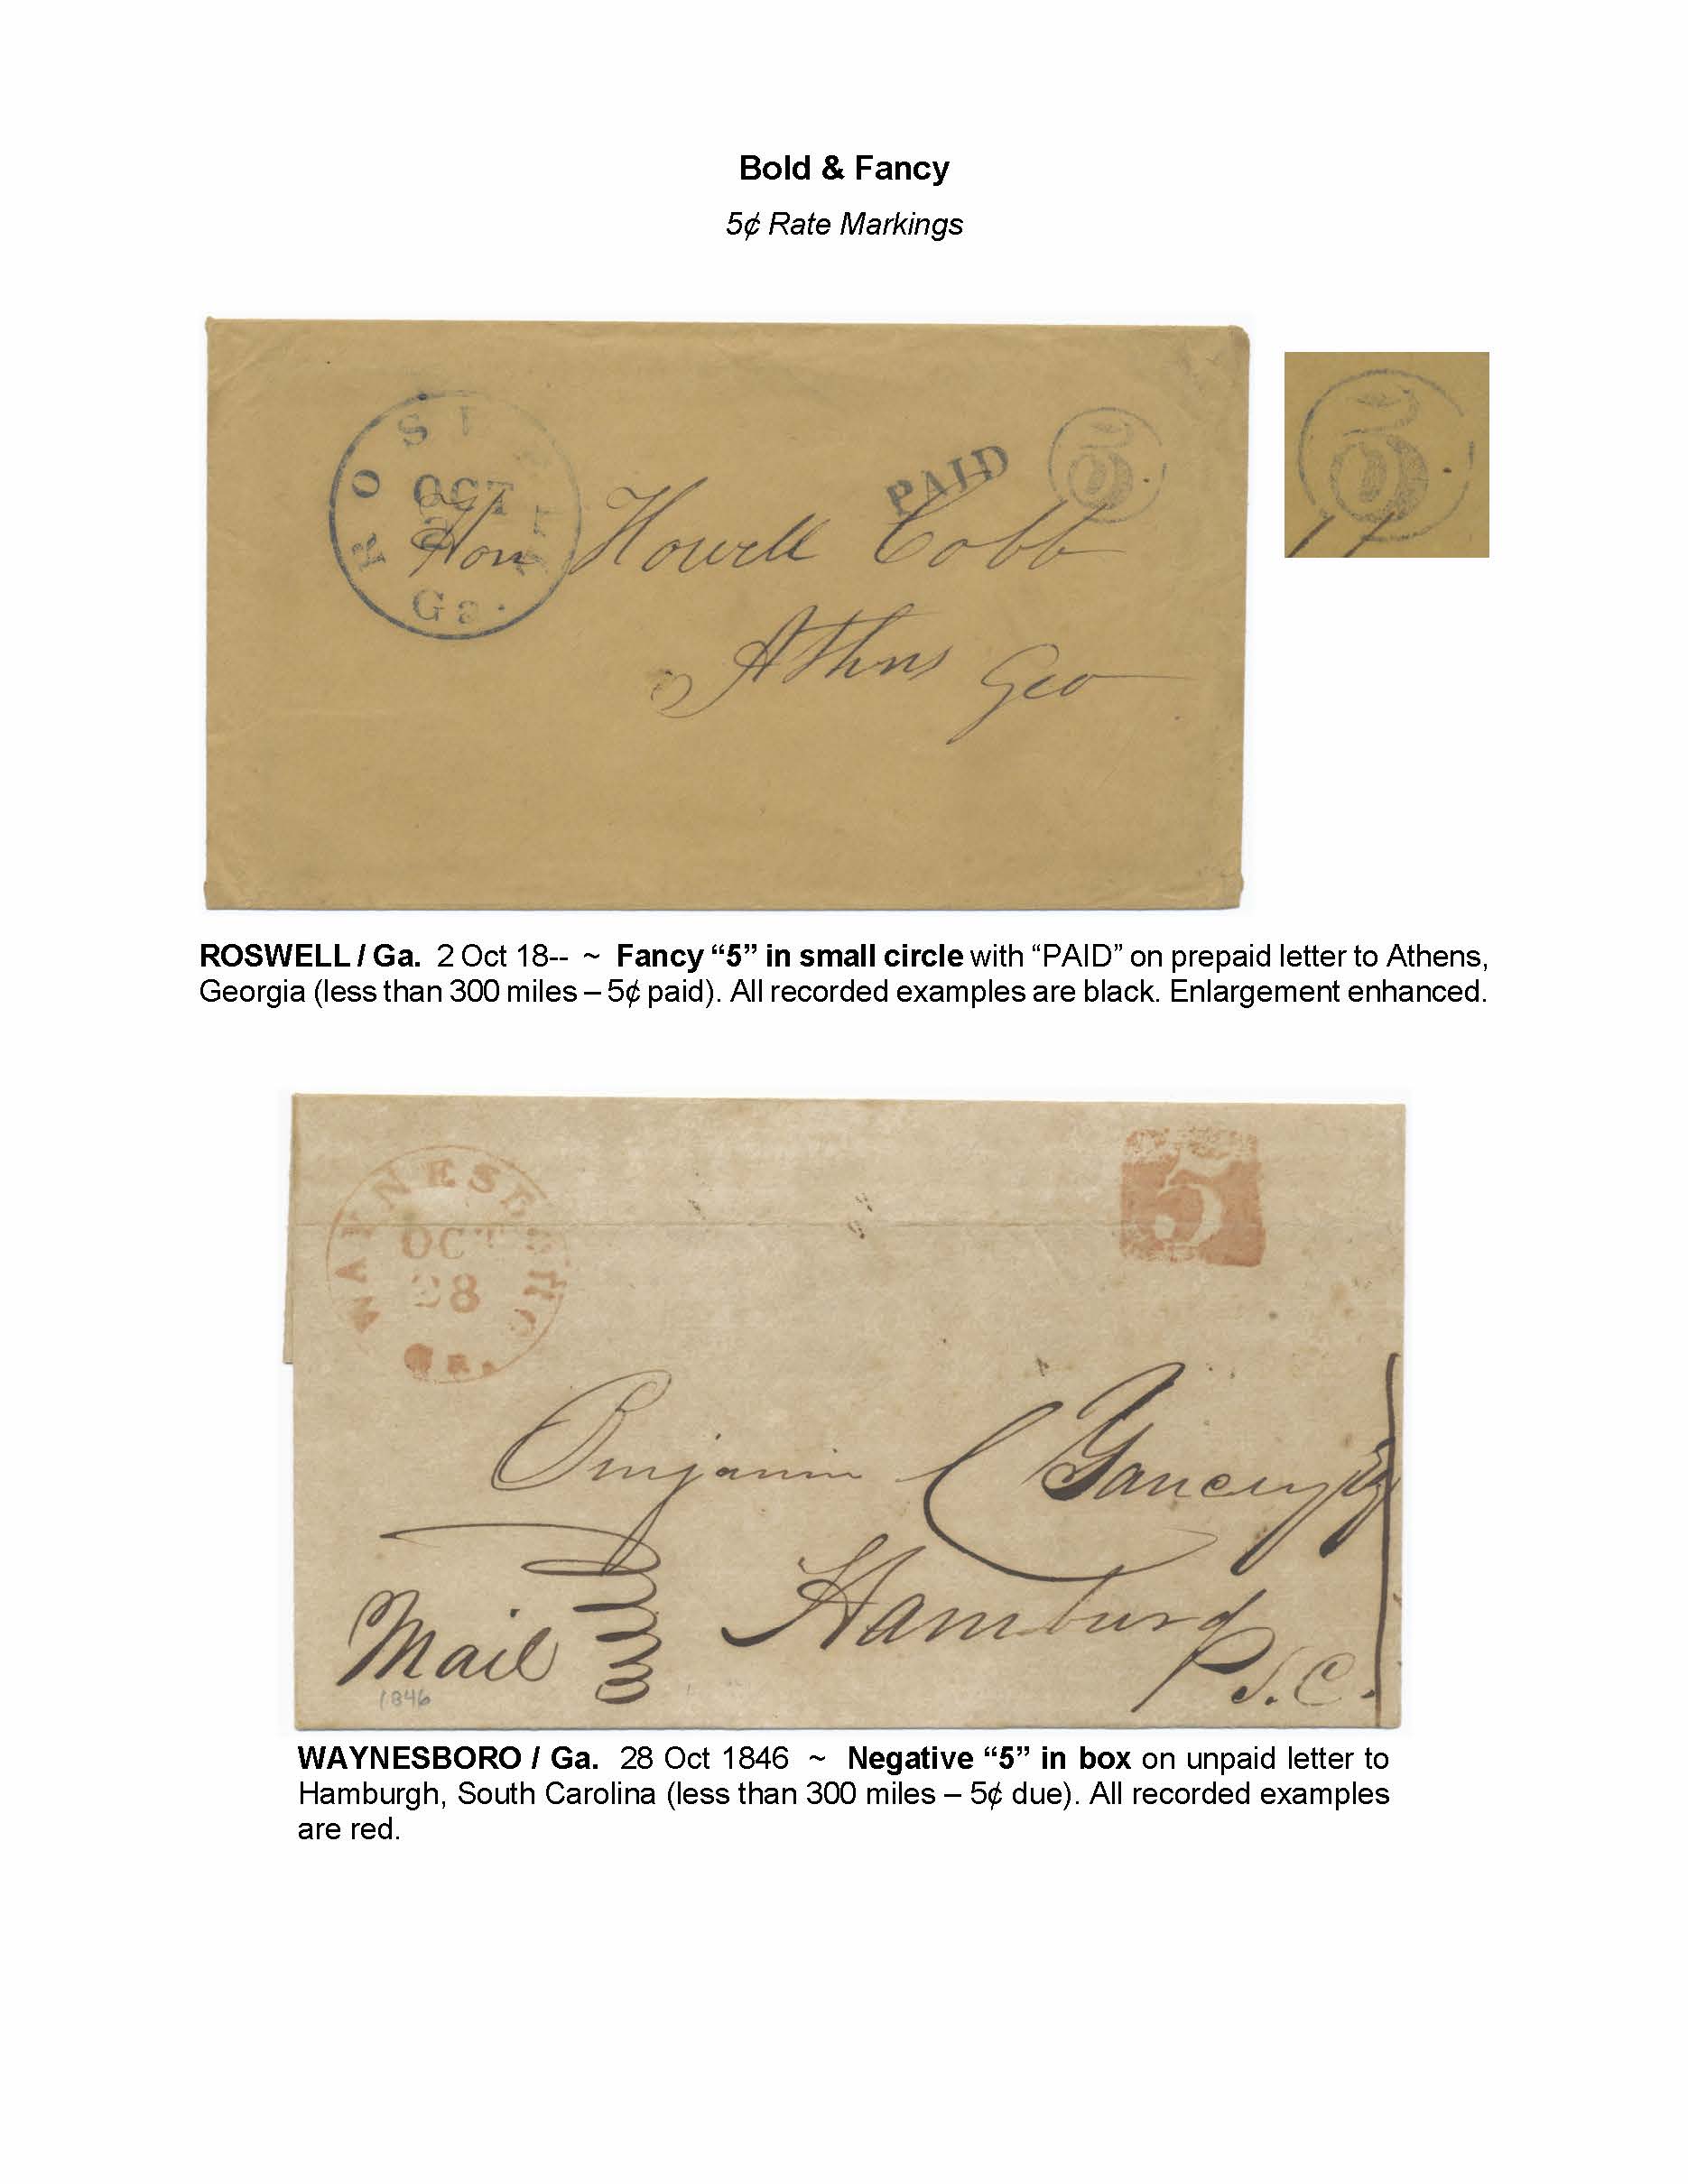 Bold & Fancy
5¢ Rate Markings
ROS
OCT
Ga.
PAID
5
5
Hon Howell Cobb
Athens Geo
ROSWELL / Ga. 2 Oct 18-- ~ Fancy “5” in small circle with “PAID” on prepaid letter to Athens,
Georgia (less than 300 miles – 5¢ paid). All recorded examples are black. Enlargement enhanced.
WAYNESBORO
OCT
28
Ga.
5
Benjamin C Yancey
Hamburg
S.C.
Mail
1846
WAYNESBORO / Ga. 28 Oct 1846 ~ Negative “5” in box on unpaid letter to
Hamburgh, South Carolina (less than 300 miles – 5¢ due). All recorded examples
are red.